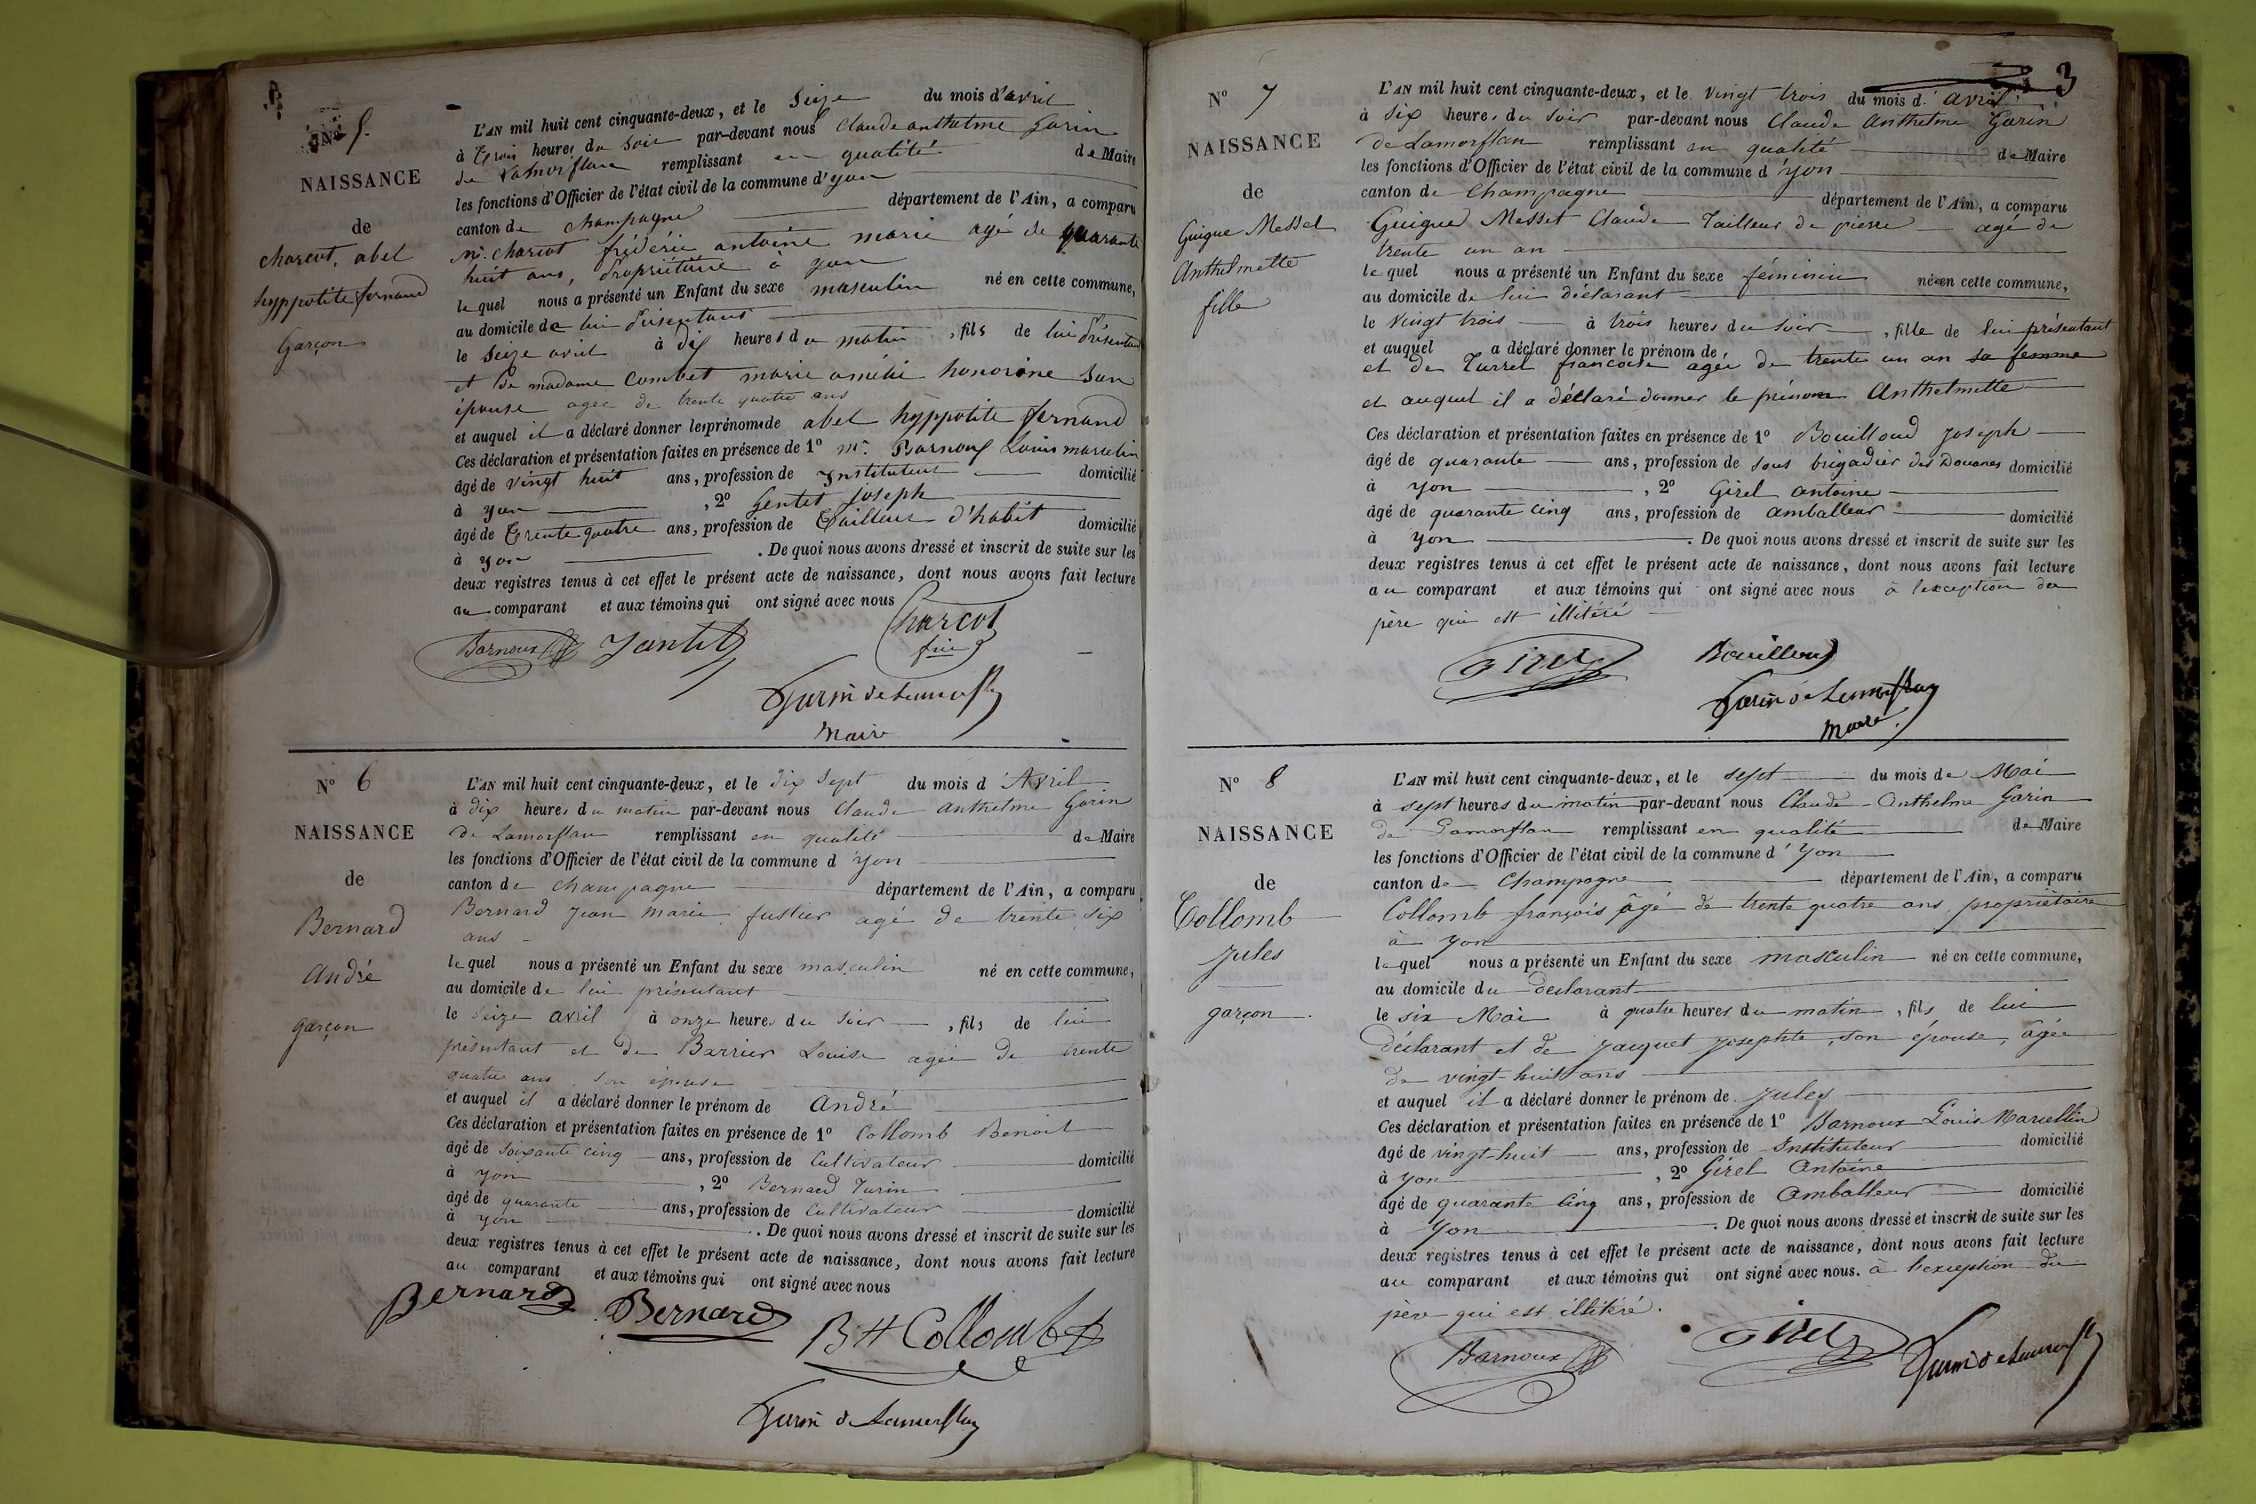 N° 5.
NAISSANCE
de
charcot, abel
hyppolite fernand
Garçon
L'AN mil huit cent cinquante-deux, et le Seize du mois d'avril
à Trois heures du soir par-devant nous Claude anthelme Garin
de Lamorflan remplissant en qualité de Maire
les fonctions d'Officier de l'état civil de la commune d'yon
canton de champagne département de l'Ain, a comparu
Mr. charcot frédéric antoine marie agé de quarante
huit ans, Propriétaire à yon
lequel nous a présenté un Enfant du sexe masculin né en cette commune,
au domicile de lui Présentant
le Seize avril à dix heures du matin, fils de lui Présentant
et de madame Combet marie amélie honorine Son
épouse agée de trente quatre ans
et auquel il a déclaré donner les prénoms de abel hyppolite fernand
Ces déclaration et présentation faites en présence de 1° Mr. Barnoux Louis marcelin
âgé de vingt huit ans, profession de Instituteur domicilié
à yon, 2° Gentet Joseph
âgé de Trente quatre ans, profession de Tailleur d'habit domicilié
à yon. De quoi nous avons dressé et inscrit de suite sur les
deux registres tenus à cet effet le présent acte de naissance, dont nous avons fait lecture
au comparant et aux témoins qui ont signé avec nous
Charcot
Barnoux
Garin de Lamorflan
Maire
N° 6
NAISSANCE
de
Bernard
André
garçon
L'AN mil huit cent cinquante-deux, et le dix Sept du mois d'Avril
à dix heures du matin par-devant nous Claude anthelme Garin
de Lamorflan remplissant en qualité de Maire
les fonctions d'Officier de l'état civil de la commune d'yon
canton de champagne département de l'Ain, a comparu
Bernard Jean Marie fustier agé de trente six
ans
lequel nous a présenté un Enfant du sexe masculin né en cette commune,
au domicile de lui présentant
le seize avril à onze heures du soir, fils de lui
présentant et de Barrier Louise agée de trente
quatre ans son épouse
et auquel il a déclaré donner le prénom de André
Ces déclaration et présentation faites en présence de 1° Collomb Benoit
âgé de soixante cinq ans, profession de Cultivateur domicilié
à yon, 2° Bernard Turin
âgé de quarante ans, profession de Cultivateur domicilié
à yon. De quoi nous avons dressé et inscrit de suite sur les
deux registres tenus à cet effet le présent acte de naissance, dont nous avons fait lecture
au comparant et aux témoins qui ont signé avec nous
Bernard Bernard Bt Collomb
Garin de Lamorflan
3
N° 7
NAISSANCE
de
Guigue Messet
Anthelmette
fille
L'AN mil huit cent cinquante-deux, et le vingt trois du mois d'avril
à six heures du soir par-devant nous Claude Anthelme Garin
de Lamorflan remplissant en qualité de Maire
les fonctions d'Officier de l'état civil de la commune d'yon
canton de Champagne département de l'Ain, a comparu
Guigue Messet Claude Tailleur de pierre agé de
trente un an
lequel nous a présenté un Enfant du sexe féminin née en cette commune,
au domicile de lui déclarant
le vingt trois à trois heures du soir, fille de lui présentant
et auquel a déclaré donner le prénom de
et de Turrel francoise agée de trente un an sa femme
et auquel il a déclaré donner le prénom Anthelmette
Ces déclaration et présentation faites en présence de 1° Bouilloud Joseph
âgé de quarante ans, profession de sous brigadier des Douanes domicilié
à yon, 2° Girel antoine
âgé de quarante cinq ans, profession de amballeur domicilié
à yon. De quoi nous avons dressé et inscrit de suite sur les
deux registres tenus à cet effet le présent acte de naissance, dont nous avons fait lecture
au comparant et aux témoins qui ont signé avec nous à l'exception du
père qui est illitéré
Girel Bouilloud
Garin de Lamorflan
Maire.
N° 8
NAISSANCE
de
Collomb
Jules
garçon.
L'AN mil huit cent cinquante-deux, et le sept du mois de Mai
à sept heures du matin par-devant nous Claude-Anthelme Garin
de Lamorflan remplissant en qualité de Maire
les fonctions d'Officier de l'état civil de la commune d'Yon
canton de Champagne département de l'Ain, a comparu
Collomb françois âgé de trente quatre ans propriétaire
à Yon
lequel nous a présenté un Enfant du sexe masculin né en cette commune,
au domicile du déclarant
le six Mai à quatre heures du matin, fils de lui
déclarant et de Jacquet Josephte, son épouse, âgée
de vingt-huit ans
et auquel il a déclaré donner le prénom de Jules
Ces déclaration et présentation faites en présence de 1° Barnoux Louis Marcellin
âgé de vingt-huit ans, profession de Instituteur domicilié
à Yon, 2° Girel Antoine
âgé de quarante cinq ans, profession de Amballeur domicilié
à Yon. De quoi nous avons dressé et inscrit de suite sur les
deux registres tenus à cet effet le présent acte de naissance, dont nous avons fait lecture
au comparant et aux témoins qui ont signé avec nous. à l'exception du
père qui est illitéré.
Barnoux Girel Garin de Lamorflan